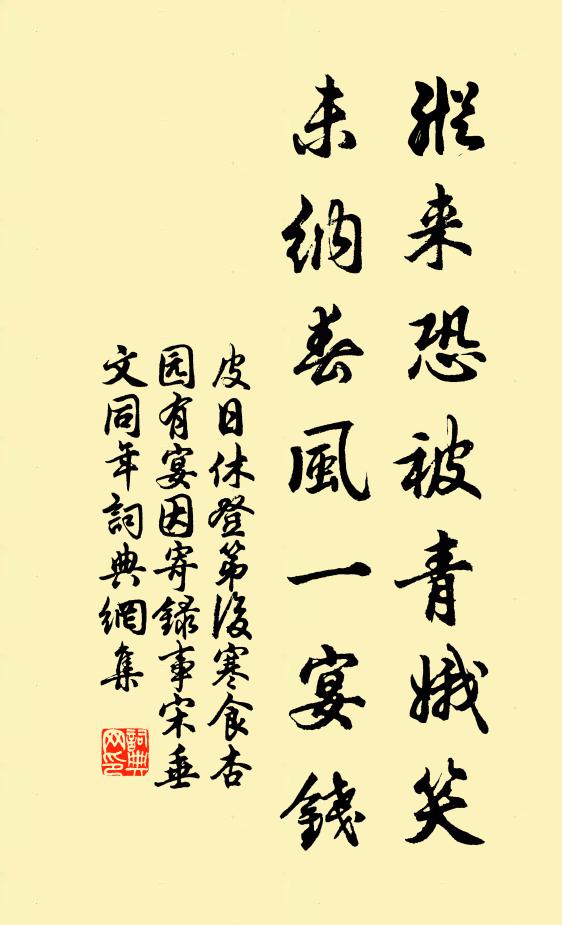 縱来恐被青娥笑
未納春風一宴錢
皮日休登第後寒食杏
园有宴因寄録事宋垂
文同年詞典網集
詞典
网印